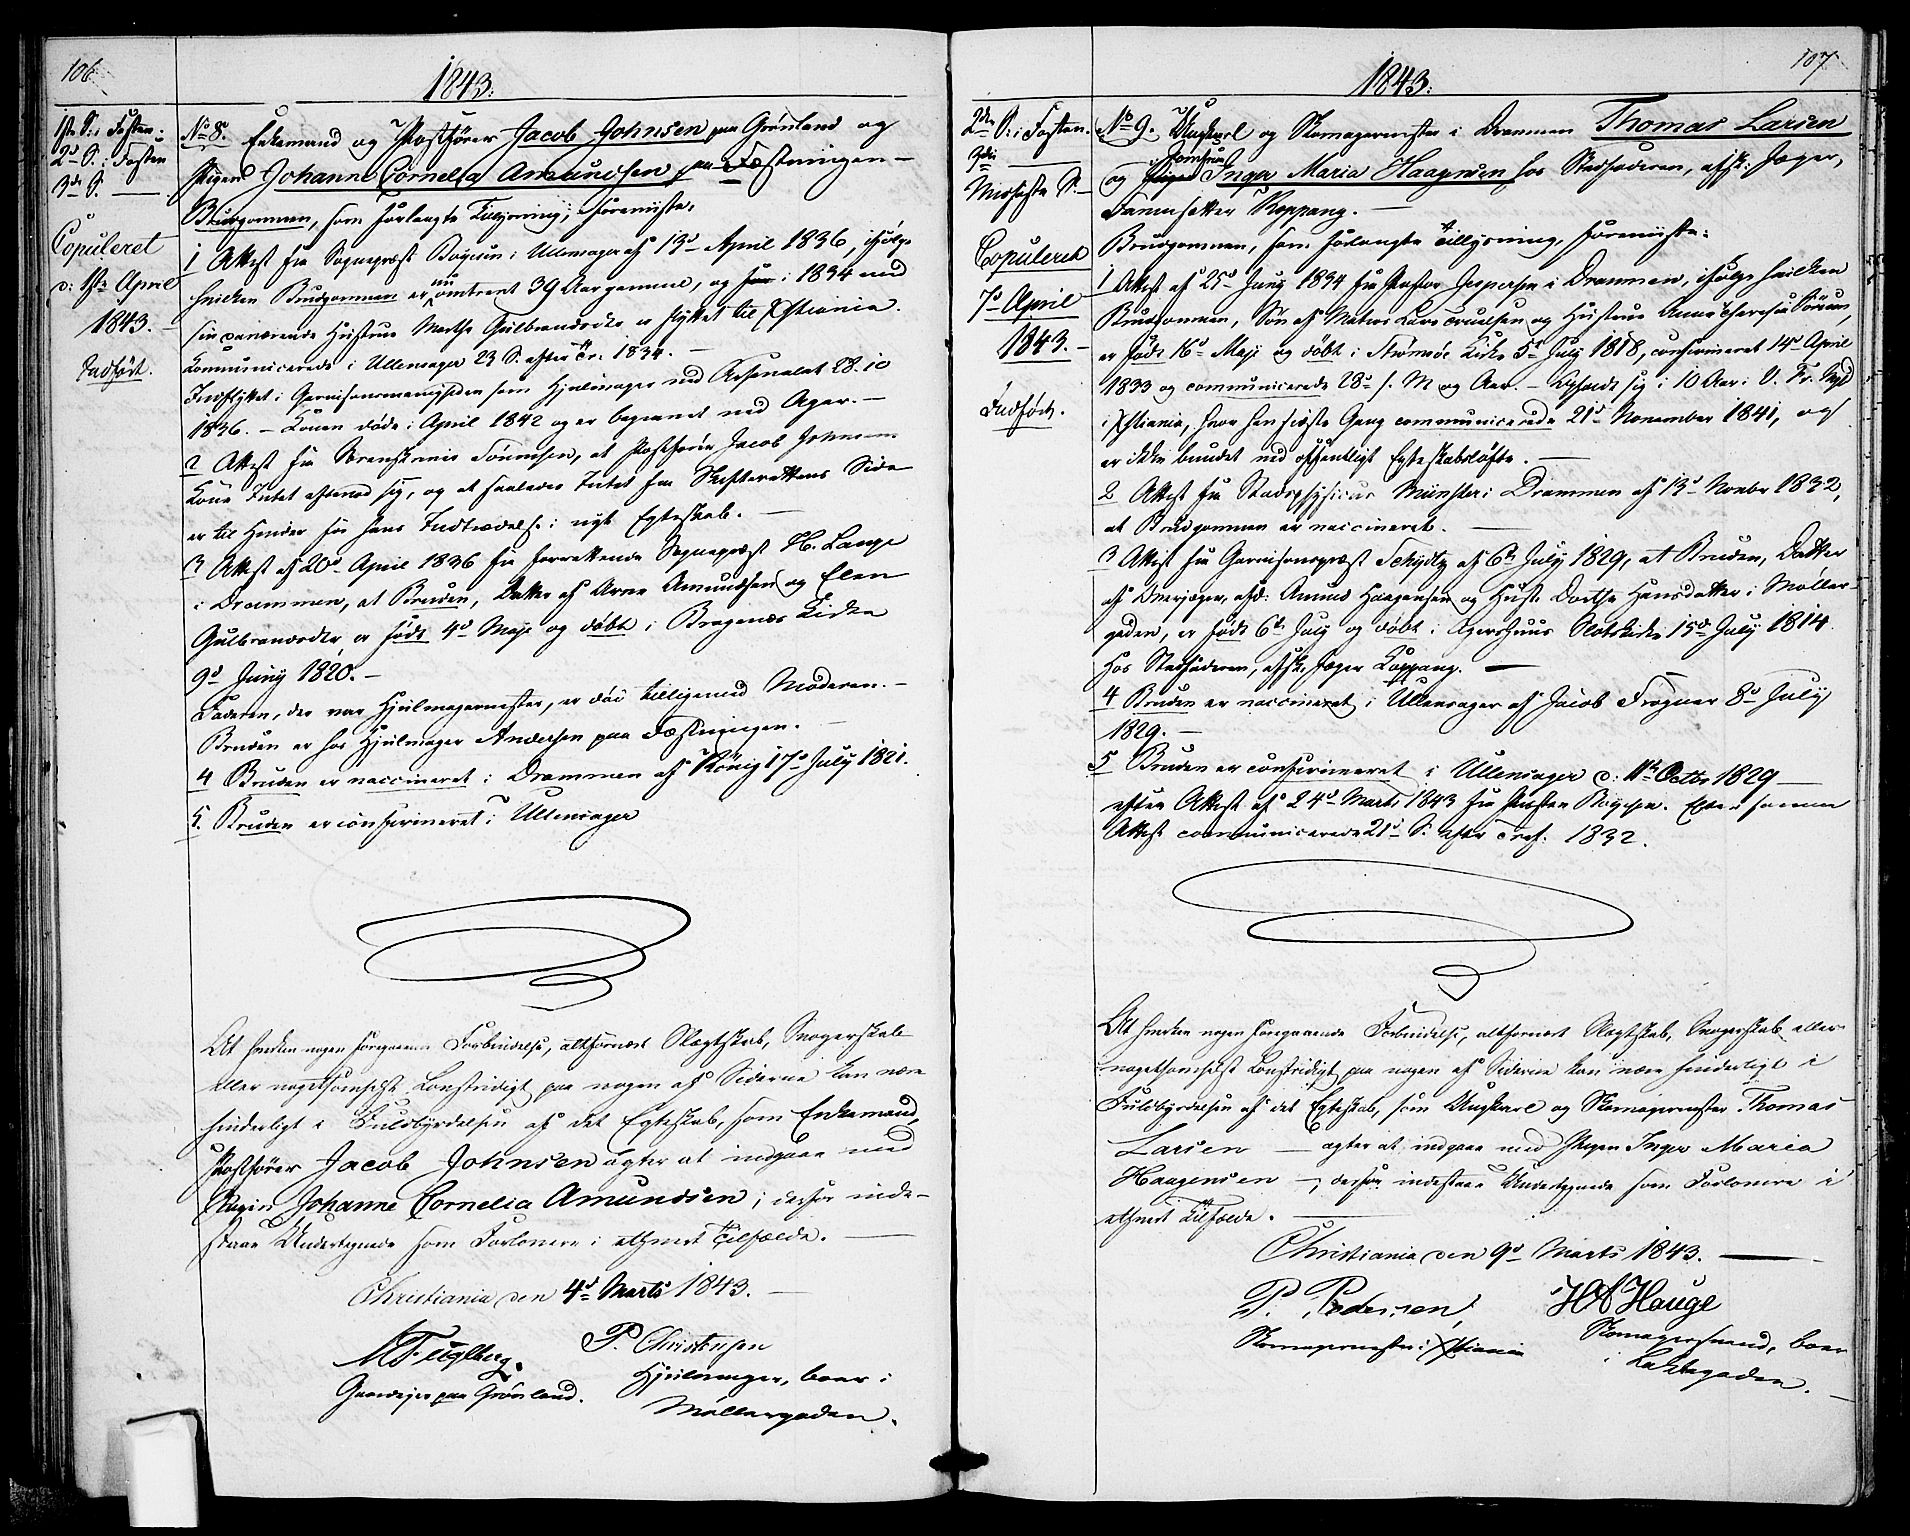 106.
1843.
1ste S. i Fasten.
2d S. i Fasten
3die S. —
Copuleret
d: 1ste April
1843. —
Indført.
No 8. Enkemand og Postfører Jacob Johnsen paa Grønland og
Pigen Johanne Cornelia Amundsen paa Fæstningen —
Brudgommen, som forlangte Tillysning, foreviiste:
1 Attest fra Sognepræst Bøgesen i Ullensager af 13d April 1836, ifølge
hvilken Brudgommen er nu omtrent 39 Aar gammel, og i 1834 med
sin værende Hustrue Marthe Gulbrandsdtr er flyttet til Xstiania.
Kommunicerede i Ullensager 23 S. efter Tr. 1834. —
Indflyttet i Garnisonsmenigheden som Hjulmager ved Arsenalet 28.
1836. — Konen døde i April 1842 og er begravet ved Ager. —
2 Attest fra Sorenskriver Tønnesen, at Postfører Jacob Johnsens
Kone Intet efterlod sig, og at saaledes Intet fra Skifterettens Side
er til Hinder for hans Indtrædelse i nyt Egteskab. —
3 Attest af 20d April 1836 fra forrettende Sognepræst H. Lange
i Drammen, at Bruden, Datter af Arne Amundsen og Elen
Gulbrandsdtr, er født 4d Maje og døbt i Bragenæs Kirke
9d Juny 1820. —
Faderen, der var Hjulmagermester, er død tilligemed Moderen. —
Bruden er hos Hjulmager Andersen paa Fæstningen. —
4 Bruden er vaccineret i Drammen af König 17d July 1821.
5. Bruden er confirmeret i Ullensager
At hverken nogen foregaaende Forbindelse, altfornært Slægtskab, Svogerskab
eller nogetsomhelst Lovstridigt paa nogen af Siderne kan være
hinderligt i Fuldbyrdelsen af det Egteskab, som Enkemand,
Postfører Jacob Johnsen agter at indgaae med
Pigen Johanne Cornelia Amundsen; derfor inde-
staae Undertegnede som Forlovere i ethvert Tilfælde. —
Christiania den 4d Marts 1843. —
M Fuglberg. P. Christensen
Gaardejer paa Grønland. Hjulmager, boer i
Møllergaden.
107
1843.
2den S. i Fasten.
3die —
Midfaste S. —
Copuleret
7d April
1843. —
Indført.
No 9. Ungkarl og Skomagermester i Drammen Thomas Larsen
og Pigen Jomfrue Inger Maria Haagensen hos Stedfaderen, afsk: Jæger,
Koppang. —
Brudgommen, som forlangte Tillysning, foreviiste:
1 Attest af 25d Juny 1834 fra Pastor Jespersen i Drammen, ifølge hvilken
Brudgommen, Søn af Matros Lars Truelsen og Hustrue Anne Sørum,
er født 16d Maji og døbt i Strømsøe Kirke 5d July 1818, confirmeret 14d April
1833 og communicerede 28d s. M og Aar. — Opholdt sig i 10 Aar i V. Fr. Mgd
i Xstiania, hvor han sidste Gang communicerede 21d November 1841, og
er ikke bundet ved offentligt Egteskabsløfte. —
2 Attest fra Stadsphysicus Münster i Drammen af 13d Novbr 1832,
at Brudgommen er vaccineret. —
3 Attest fra Garnisonspræst Schydtz af 6te July 1829, at Bruden, Datter
af Overjæger, afd: Amund Haagensen og Hust. Dorthe Hansdatter i Møller-
gaden, er født 6te July og døbt i Agershuus Slotskirke 15d July 1814
hos Stedfaderen, afsk. Jæger Koppang. —
4 Bruden er vaccineret i Ullensager af Jacob Frogner 8d July
1829. —
5 Bruden er confirmeret i Ullensager d: 11te Octbr 1829 —
efter Attest af 24d Marts 1843 fra Præsten Bøgesen. Efter samme
Attest communicerede 21d S. efter Tref. 1832.
At hverken nogen foregaaende Forbindelse, altfornært Slægtskab, Svogerskab eller
nogetsomhelst Lovstridigt paa nogen af Siderne kan være hinderligt i
Fuldbyrdelsen af det Egteskab, som Ungkarl og Skomagermester Thomas
Larsen — agter at indgaae med Pigen Inger Maria
Haagensen —, derfor indestaae Undertegnede som Forlovere i
ethvert Tilfælde. —
Christiania den 9d Marts 1843. —
P. Pedersen, HA Hauge
Skomagermester i Xstiania Skomagersvend, boer
i Lakkegaden. —